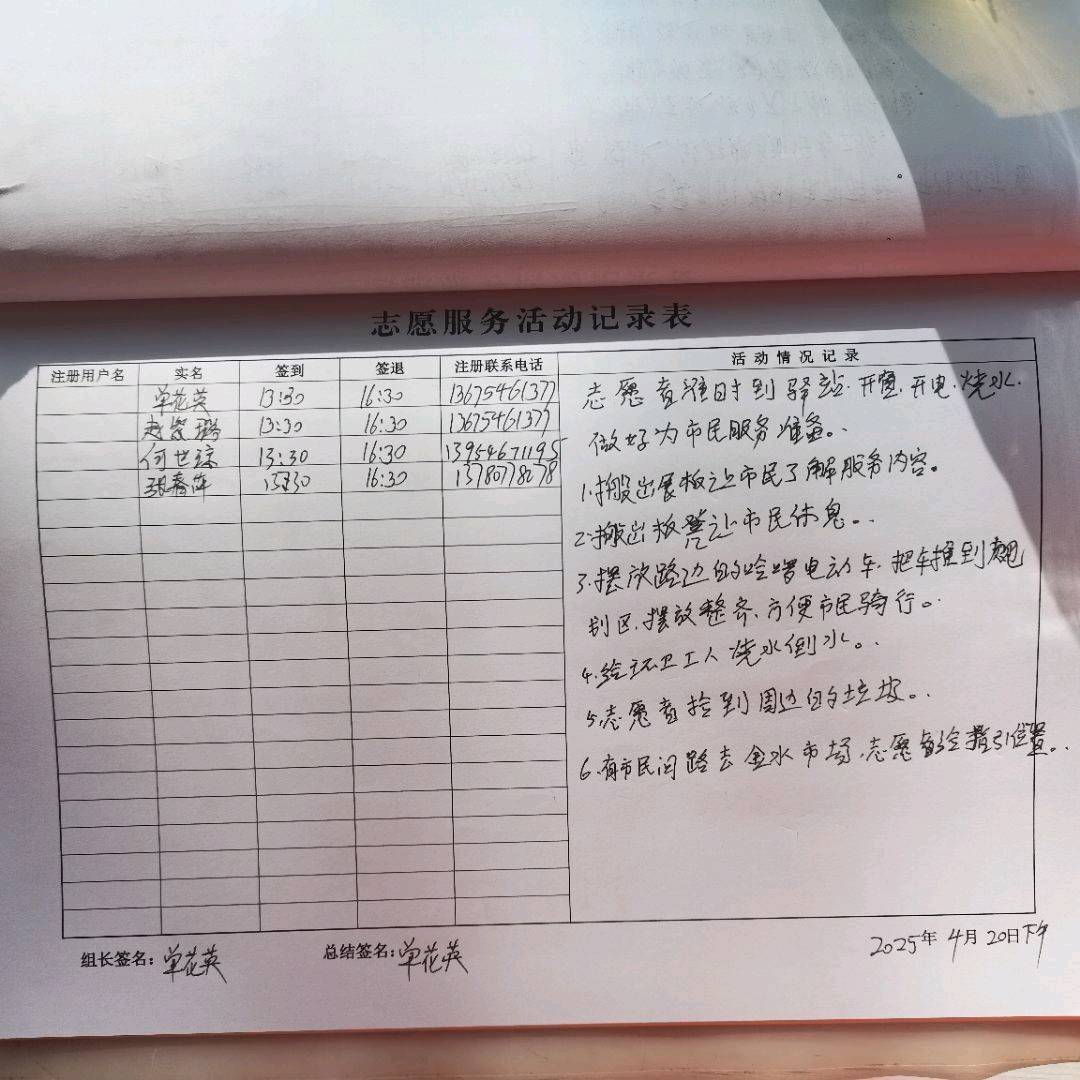 志愿服务活动记录表
注册用户名 实名 签到 签退 注册联系电话 活动情况记录
单花英 13:30 16:30 13675461377
13:30 16:30 13675461377
何世琼 13:30 16:30 13954671195
张春萍 13:30 16:30 13780778278
志愿者准时到驿站.开窗.开电.烧水.
做好为市民服务准备。.
1.搬出展板让市民了解服务内容。
2.搬出板凳让市民休息。.
3.摆放路边的哈啰电动车.把车推到
别区.摆放整齐.方便市民骑行。.
4.给环卫工人烧水倒水。.
5.志愿者捡到周边的垃圾。.
6.有市民问路去金水市场.志愿者给指引位置。.
组长签名：单花英 总结签名：单花英 2025年4月20日下午